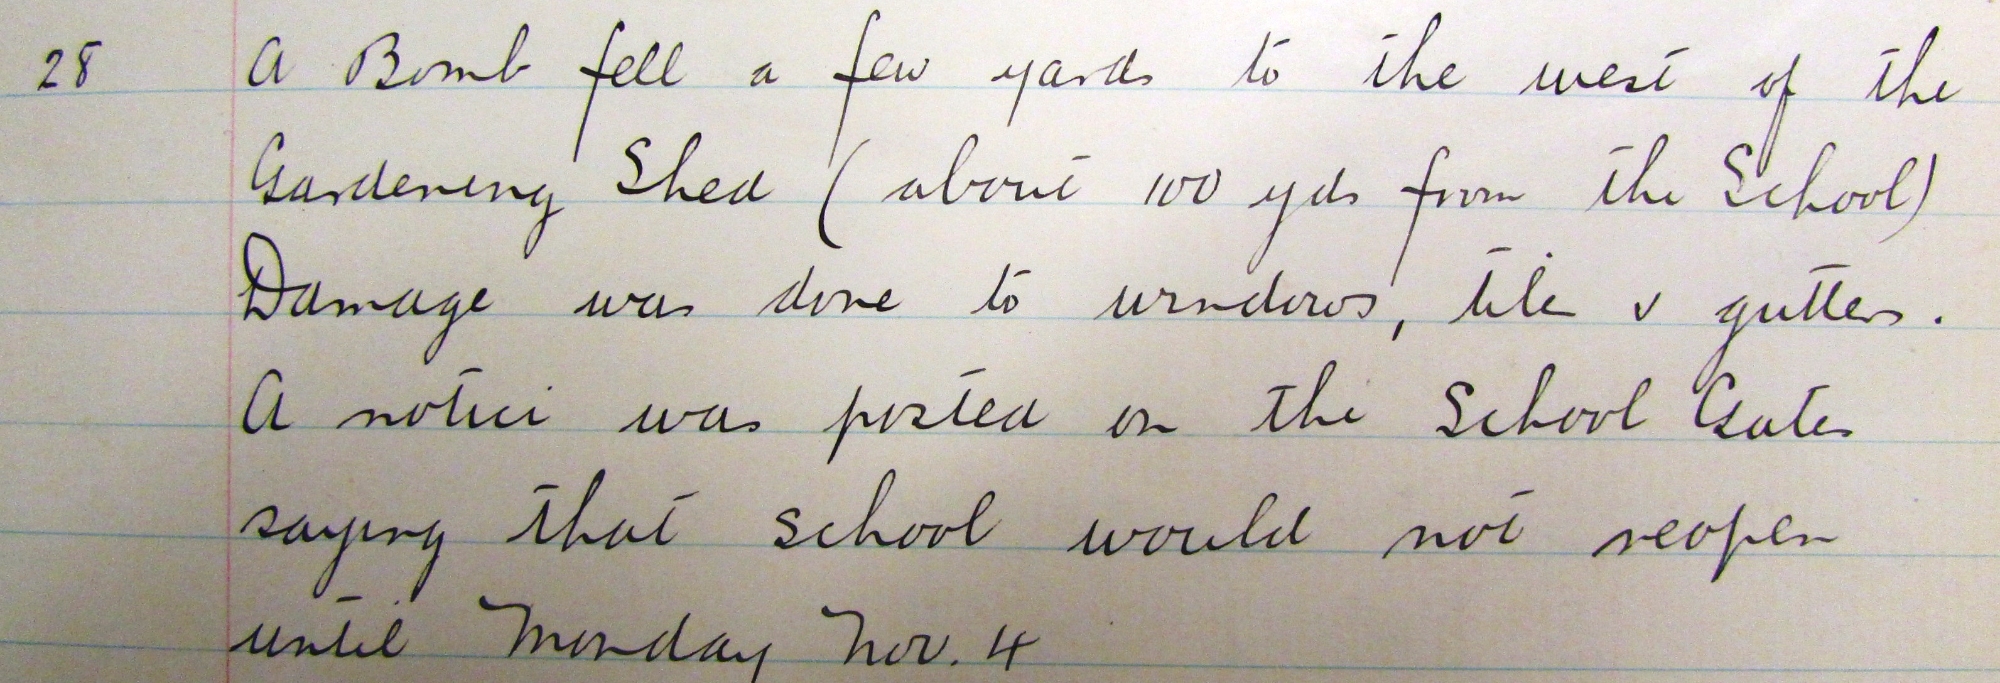 28 A Bomb fell a few yards to the west of the
Gardening Shed (about 100 yds from the School)
Damage was done to windows, tiles & gutters.
A notice was posted on the School Gates
saying that school would not reopen
until Monday Nov. 4